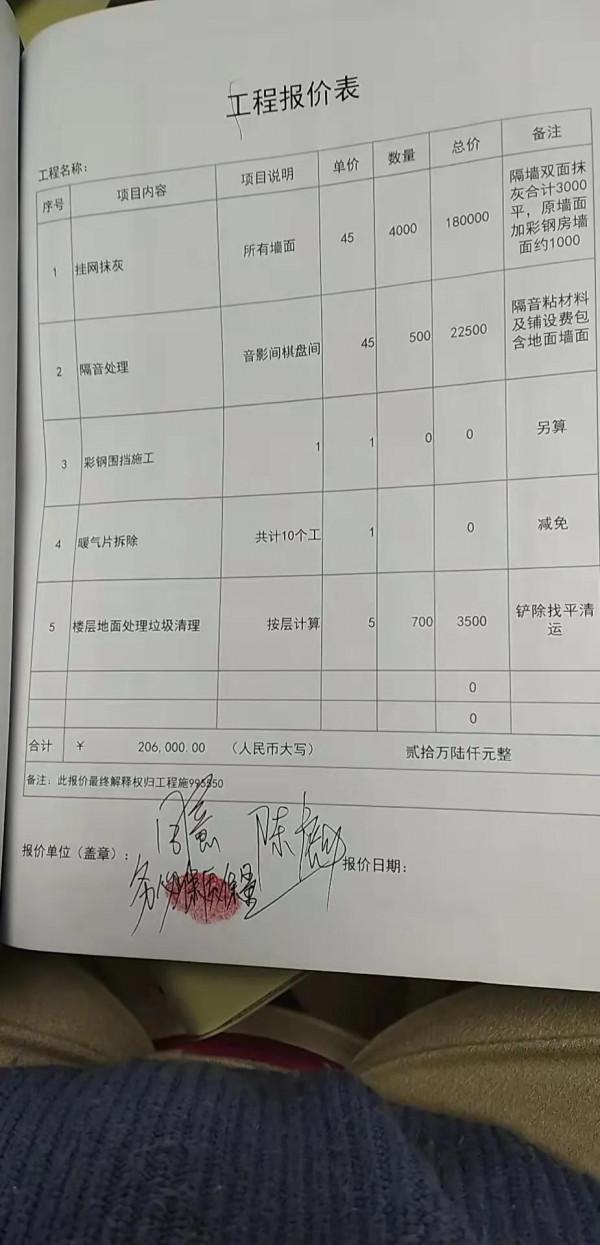 工程报价表
工程名称:
序号 项目内容 项目说明 单价 数量 总价 备注
1 挂网抹灰 所有墙面 45 4000 180000 隔墙双面抹
灰合计3000
平，原墙面
加彩钢房墙
面约1000
2 隔音处理 音影间棋盘间 45 500 22500 隔音粘材料
及铺设费包
含地面墙面
3 彩钢围挡施工 1 1 0 0 另算
4 暖气片拆除 共计10个工 1 0 减免
5 楼层地面处理垃圾清理 按层计算 5 700 3500 铲除找平清
运
0
0
合计 ¥ 206,000.00 （人民币大写） 贰拾万陆仟元整
备注：此报价最终解释权归工程施995550
报价单位（盖章）: 报价日期:
保质保量